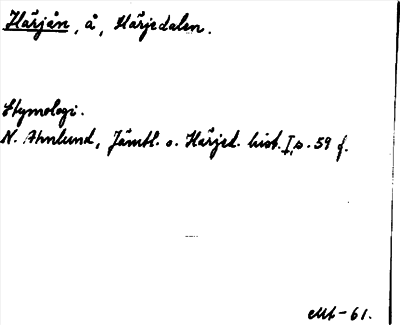 Härjån, å, Härjedalen.
Etymologi.
N. Ahnlund, Jämtl. o. Härjed. hist. I, s. 59 f.
Mt-61.